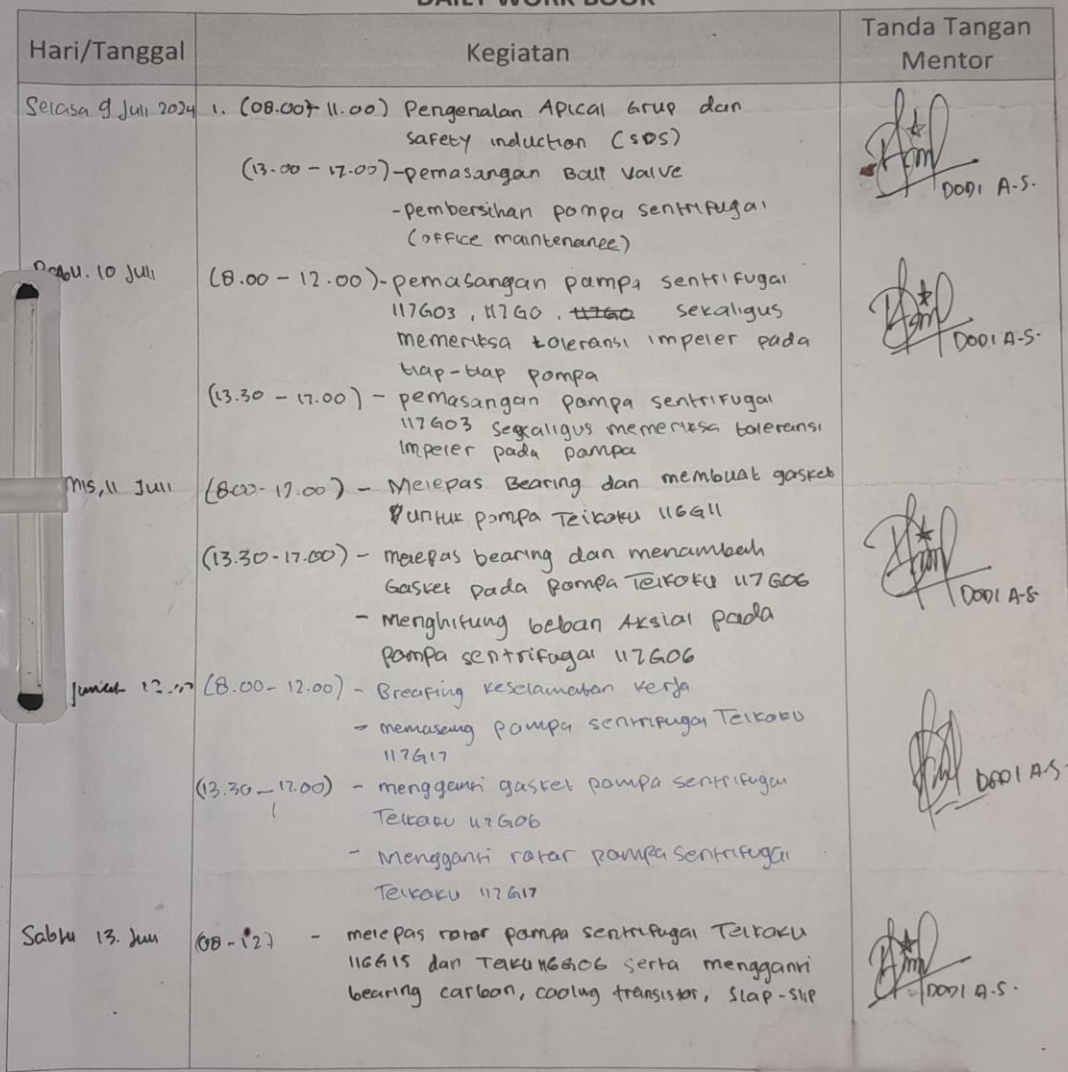 DAILY WORK BOOK
Hari/Tanggal
Kegiatan
Tanda Tangan
Mentor
Selasa 9 Juli 2024
1. (08.00 - 11.00) Pengenalan Apical Grup dan
safety induction (SDS)
(13.00 - 17.00) -pemasangan Ball valve
-pembersihan pompa sentrifugal
(office maintenance)
DODI A.S.
Rabu. 10 Juli
(8.00 - 12.00) - pemasangan pompa sentrifugal
117G03, 117G0 . sekaligus
memeriksa toleransi impeler pada
tiap-tiap pompa
(13.30 - 17.00) - pemasangan pompa sentrifugal
117G03 sekaligus memeriksa toleransi
Impeler pada pompa
DODI A.S.
mis, 11 Juli
(8.00 - 12.00) - Melepas Bearing dan membuat gasket
untuk pompa Teikoku 116G11
(13.30-17.00) - melepas bearing dan menambah
Gasket pada pompa Teikoku 117G06
- menghitung beban Aksial pada
pompa sentrifugal 117G06
DODI A.S
Jumat 12
(8.00 - 12.00) - Breafing keselamatan kerja
- memasang pompa sentrifugal Teikoku
117G17
(13.30 - 17.00) - mengganti gasket pompa sentrifugal
Teikoku 117G06
- Mengganti rotor pompa sentrifugal
Teikoku 117G17
DODI A.S
Sabtu 13. Juli
(08 - 12) - melepas rotor pompa sentrifugal Teikoku
116G15 dan serta mengganti
bearing carbon, cooling transistor, slap-slip
DODI A.S.